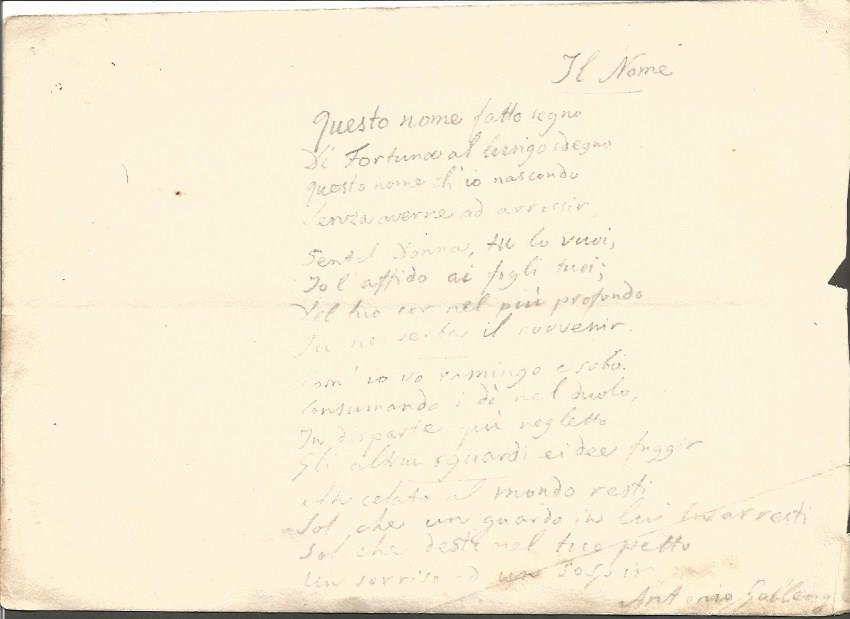 Il Nome
Questo nome fatto segno
Di Fortuna al lungo sdegno
Questo nome ch'io nascondo
Senza averne ad arrossir,
Gentil Donna, tu lo vuoi,
Io l'affido ai fogli tuoi;
Nel tuo cor nel più profondo
Tu ne serba il souvenir.
Com' io vo ramingo e solo.
Consumando i dì nel duolo,
In disparte più negletto
Gli altrui sguardi ei dee fuggir
Ah celato al mondo resti
Sol che un guardo in lui tu arresti
Sol che desti nel tuo petto
Un sorriso od un sospir
Antonio Gallenga